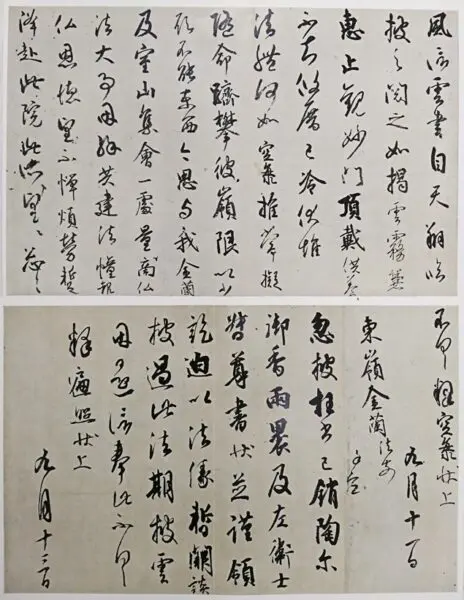 風信雲書自天翔臨
披之閲之如揭雲霧兼
惠止觀妙門頂戴供養
不知攸厝已冷伏惟
法體何如空海推常擬
隨命躋攀彼嶺限以少
願不能東西今思与我金蘭
及室山集會一處量商仏
法大事因緣共建法幢報
仏恩德望不憚煩勞蹔
降赴此院此所望々忩々
不具釋空海狀上
九月十一日
東嶺金蘭法前
謹空
忽披枉書已銷陶尓
御香兩裹及左衛士
督尊書狀並謹領
訖迫以法緣暫闕談
披過此法期披雲
因還信奉此不具
釋遍照狀上
九月十三日